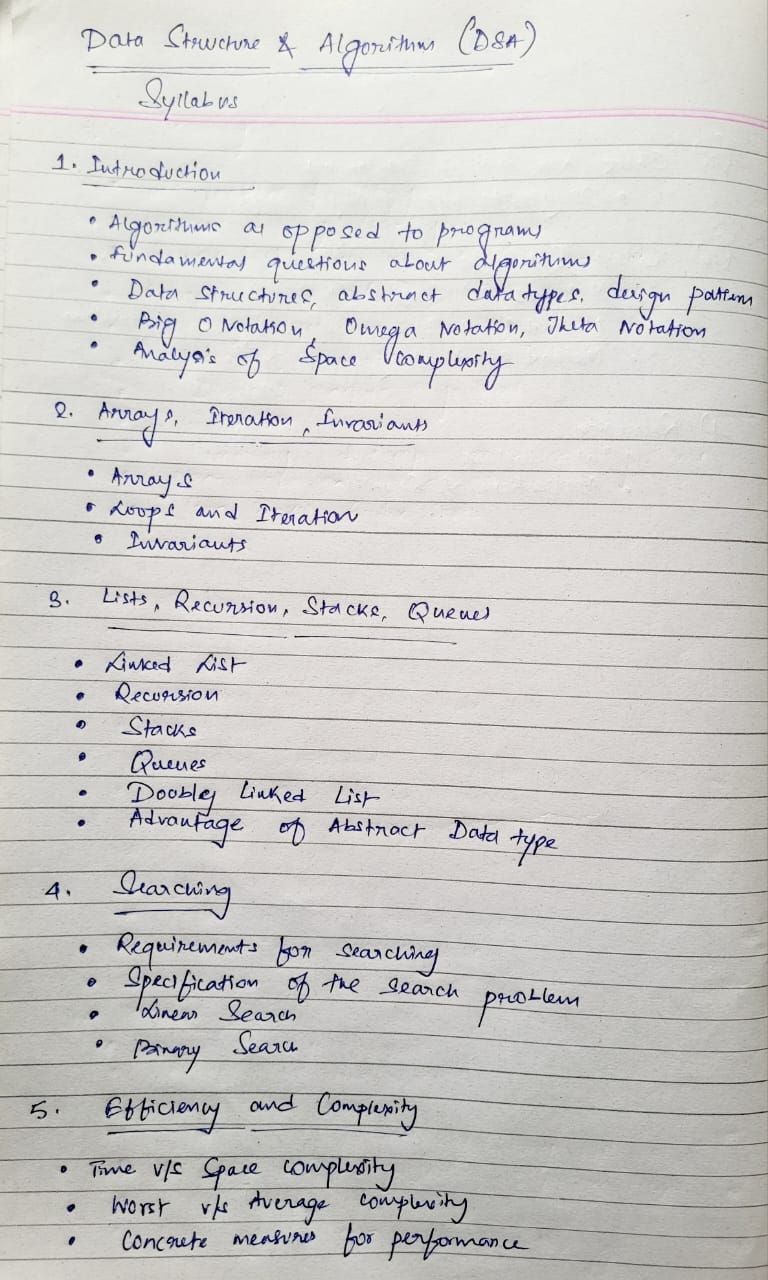 Data Structure & Algorithms (DSA)
Syllabus
1. Introduction
• Algorithms as opposed to programs
• fundamental questions about algorithms
• Data structures, abstract data types, design pattern
• Big O Notation, Omega Notation, Theta Notation
• Analysis of Space Complexity
2. Arrays, Iteration, Invariants
• Arrays
• Loops and Iteration
• Invariants
3. Lists, Recursion, Stacks, Queues
• Linked List
• Recursion
• Stacks
• Queues
• Doobley Linked List
• Advantage of Abstract Data type
4. Searching
• Requirements for searching
• Specification of the search problem
• Linear Search
• Binary Search
5. Efficiency and Complexity
• Time v/s Space complexity
• Worst v/s Average complexity
• Concrete measures for performance